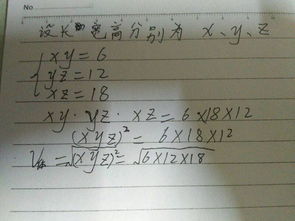 No
设长宽高分别为 x、y、z
xy=6
yz=12
xz=18
xy·yz·xz=6×18×12
(xyz)²=6×18×12
V=√(xyz)²=√6×12×18